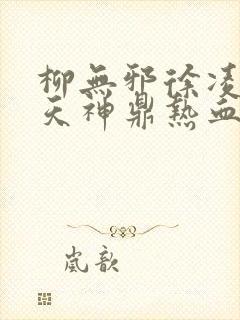 柳無邪徐凌
天神鼎熱血
嵐歆